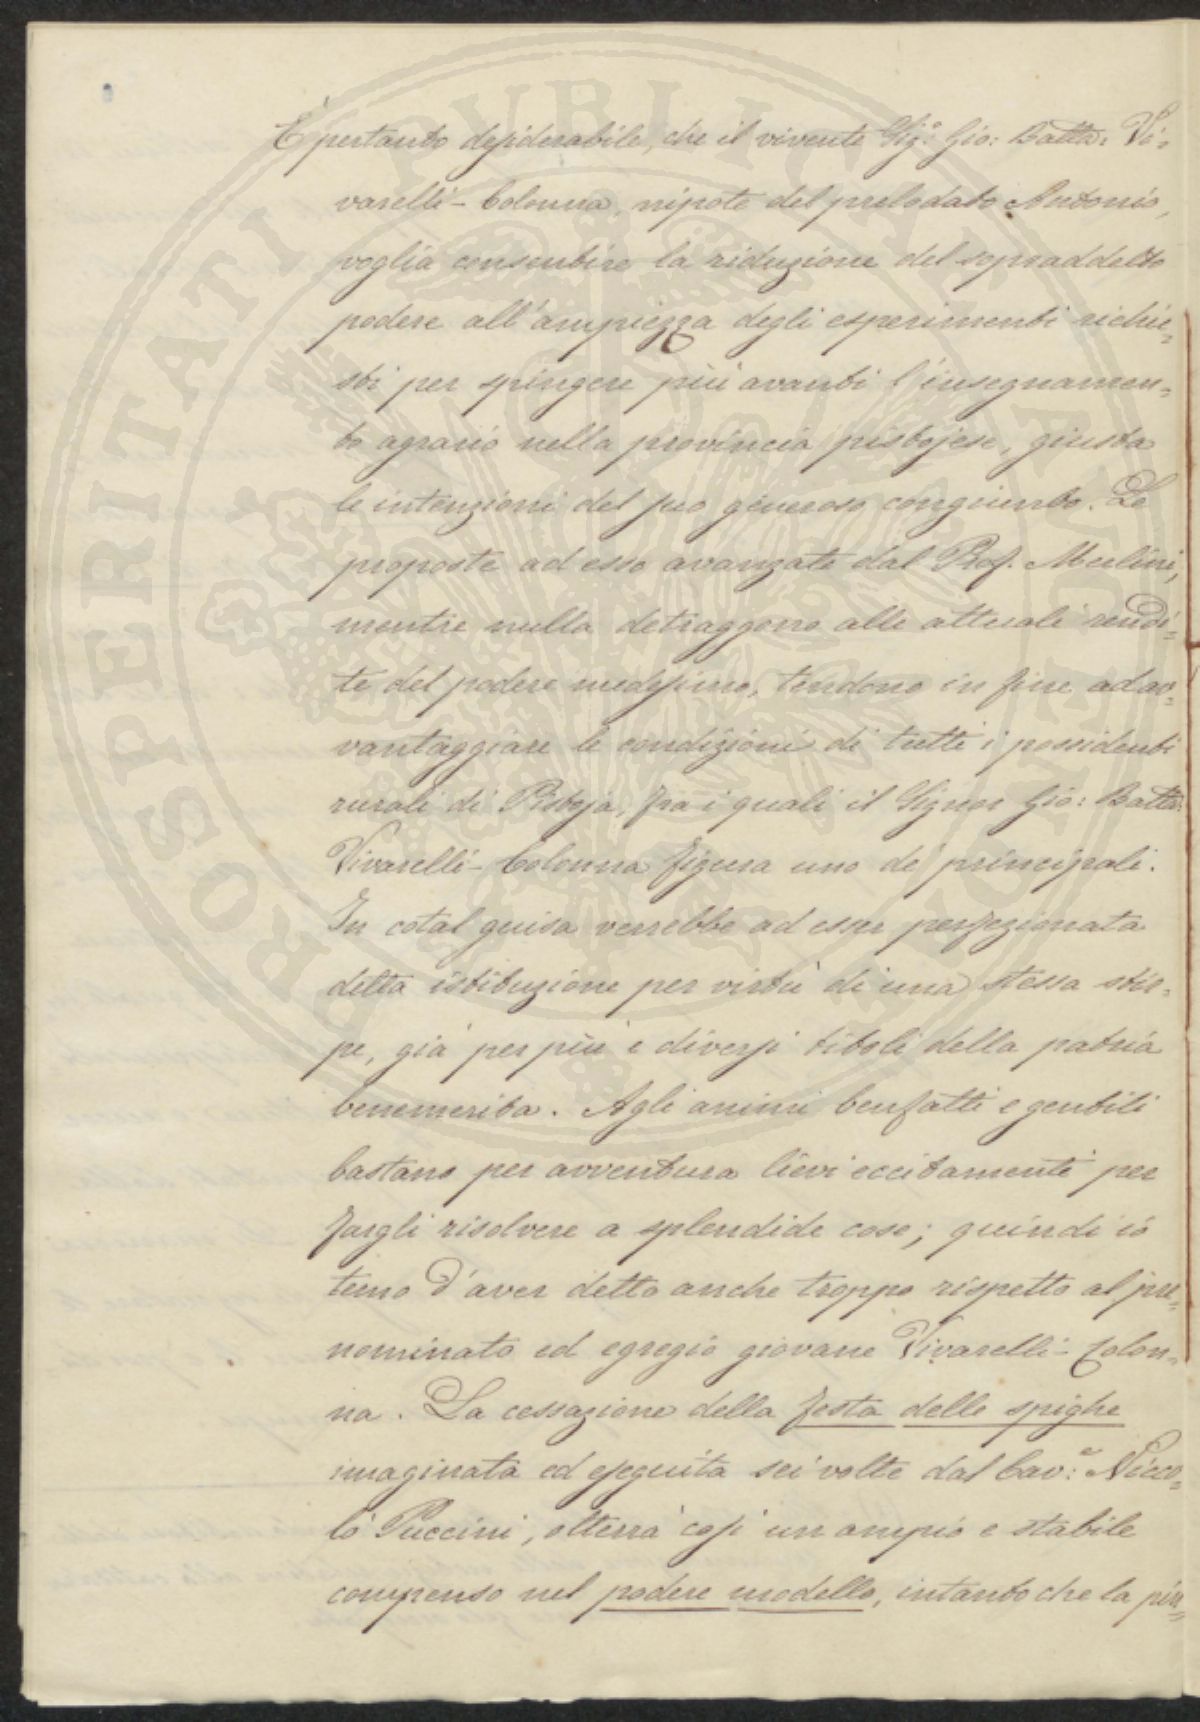 È pertanto desiderabile, che il vivente Sigr: Gio: Batta: Vi=
varelli-Colonna, nipote del prelodato Antonio,
voglia consentire la riduzione del sopraddetto
podere all'ampiezza degli esperimenti richie=
sti per spingere più avanti l'insegnamen=
to agrario nella provincia pistojese, giusta
le intenzioni del suo generoso congiunto. Le
proposte ad esso avanzate dal Prof. Merlini,
mentre nulla detraggono alle attuali rendi=
te del podere medesimo, tendono in fine ad av=
vantaggiare le condizioni di tutti i possidenti
rurali di Pistoja, fra i quali il Signor Gio: Batta:
Vivarelli-Colonna figura uno de' principali.
In cotal guisa verrebbe ad esser perfezionata
detta istituzione per virtù di una stessa stir=
pe, già per più e diversi titoli della patria
benemerita. Agli animi benfatti e gentili
bastano per avventura lievi eccitamenti per
fargli risolvere a splendide cose; quindi io
temo d'aver detto anche troppo rispetto al pre=
nominato ed egregio giovane Vivarelli-Colon=
na. La cessazione della festa delle spighe
imaginata ed eseguita sei volte dal Cav:e Nicco=
lò Puccini, otterrà così un ampio e stabile
compenso nel podere modello, intanto che la pin=
PROSPERITATI PUBLICAE AUGENDAE